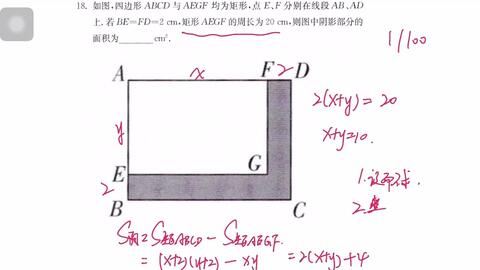 18. 如图,四边形 ABCD 与 AEGF 均为矩形,点 E、F 分别在线段 AB、AD
上.若 BE=FD=2 cm,矩形 AEGF 的周长为 20 cm,则图中阴影部分的
面积为________cm².
1/100
A x F 2 D
2(x+y)=20
y
x+y=10.
E G
1.
2
2.
B C
S阴=S矩ABCD-S矩AEGF.
=(x+2)(y+2)-xy =2(x+y)+4